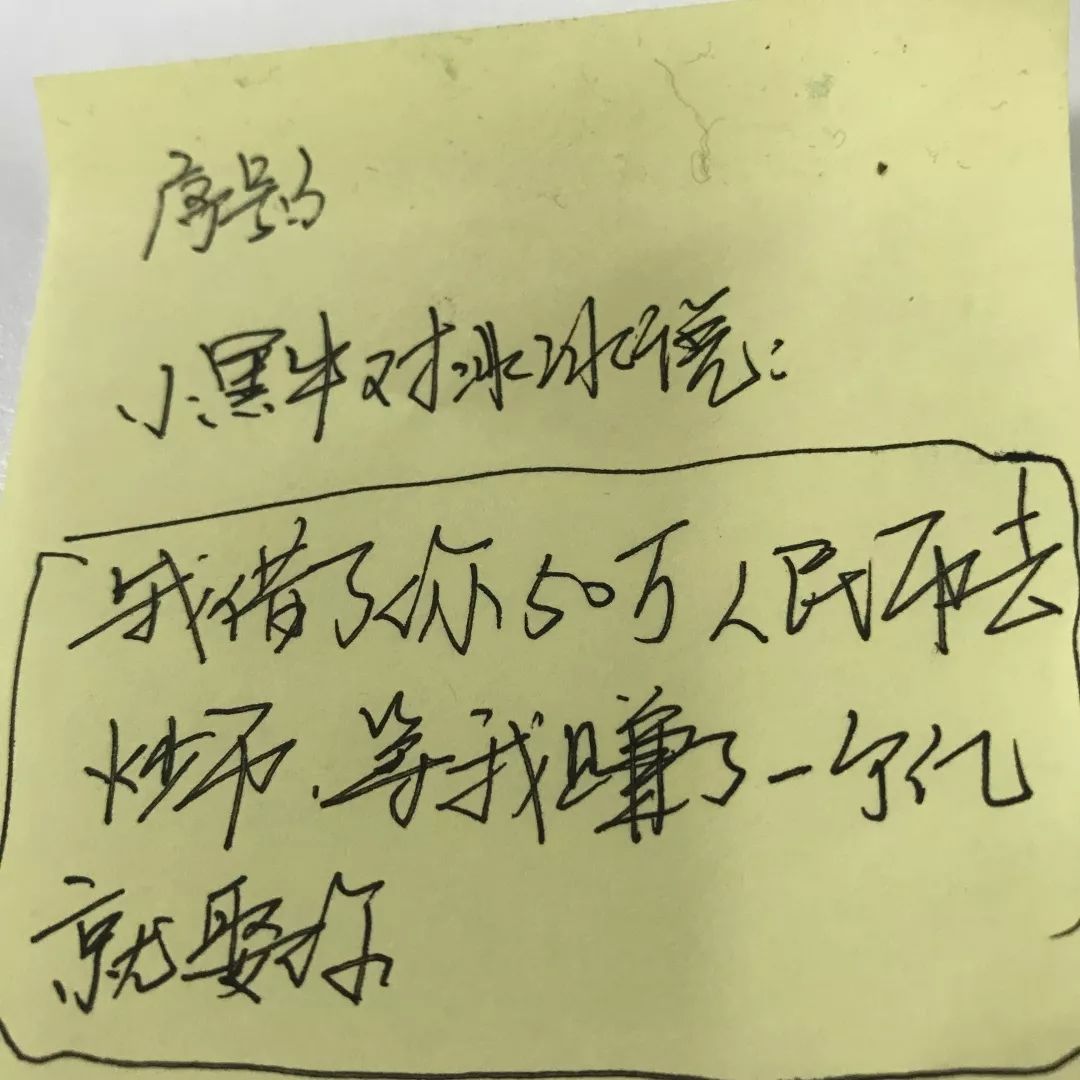 序号3
小黑牛对冰冰说:
我借了你50万人民币去
炒币、等我赚了一个亿
就娶你